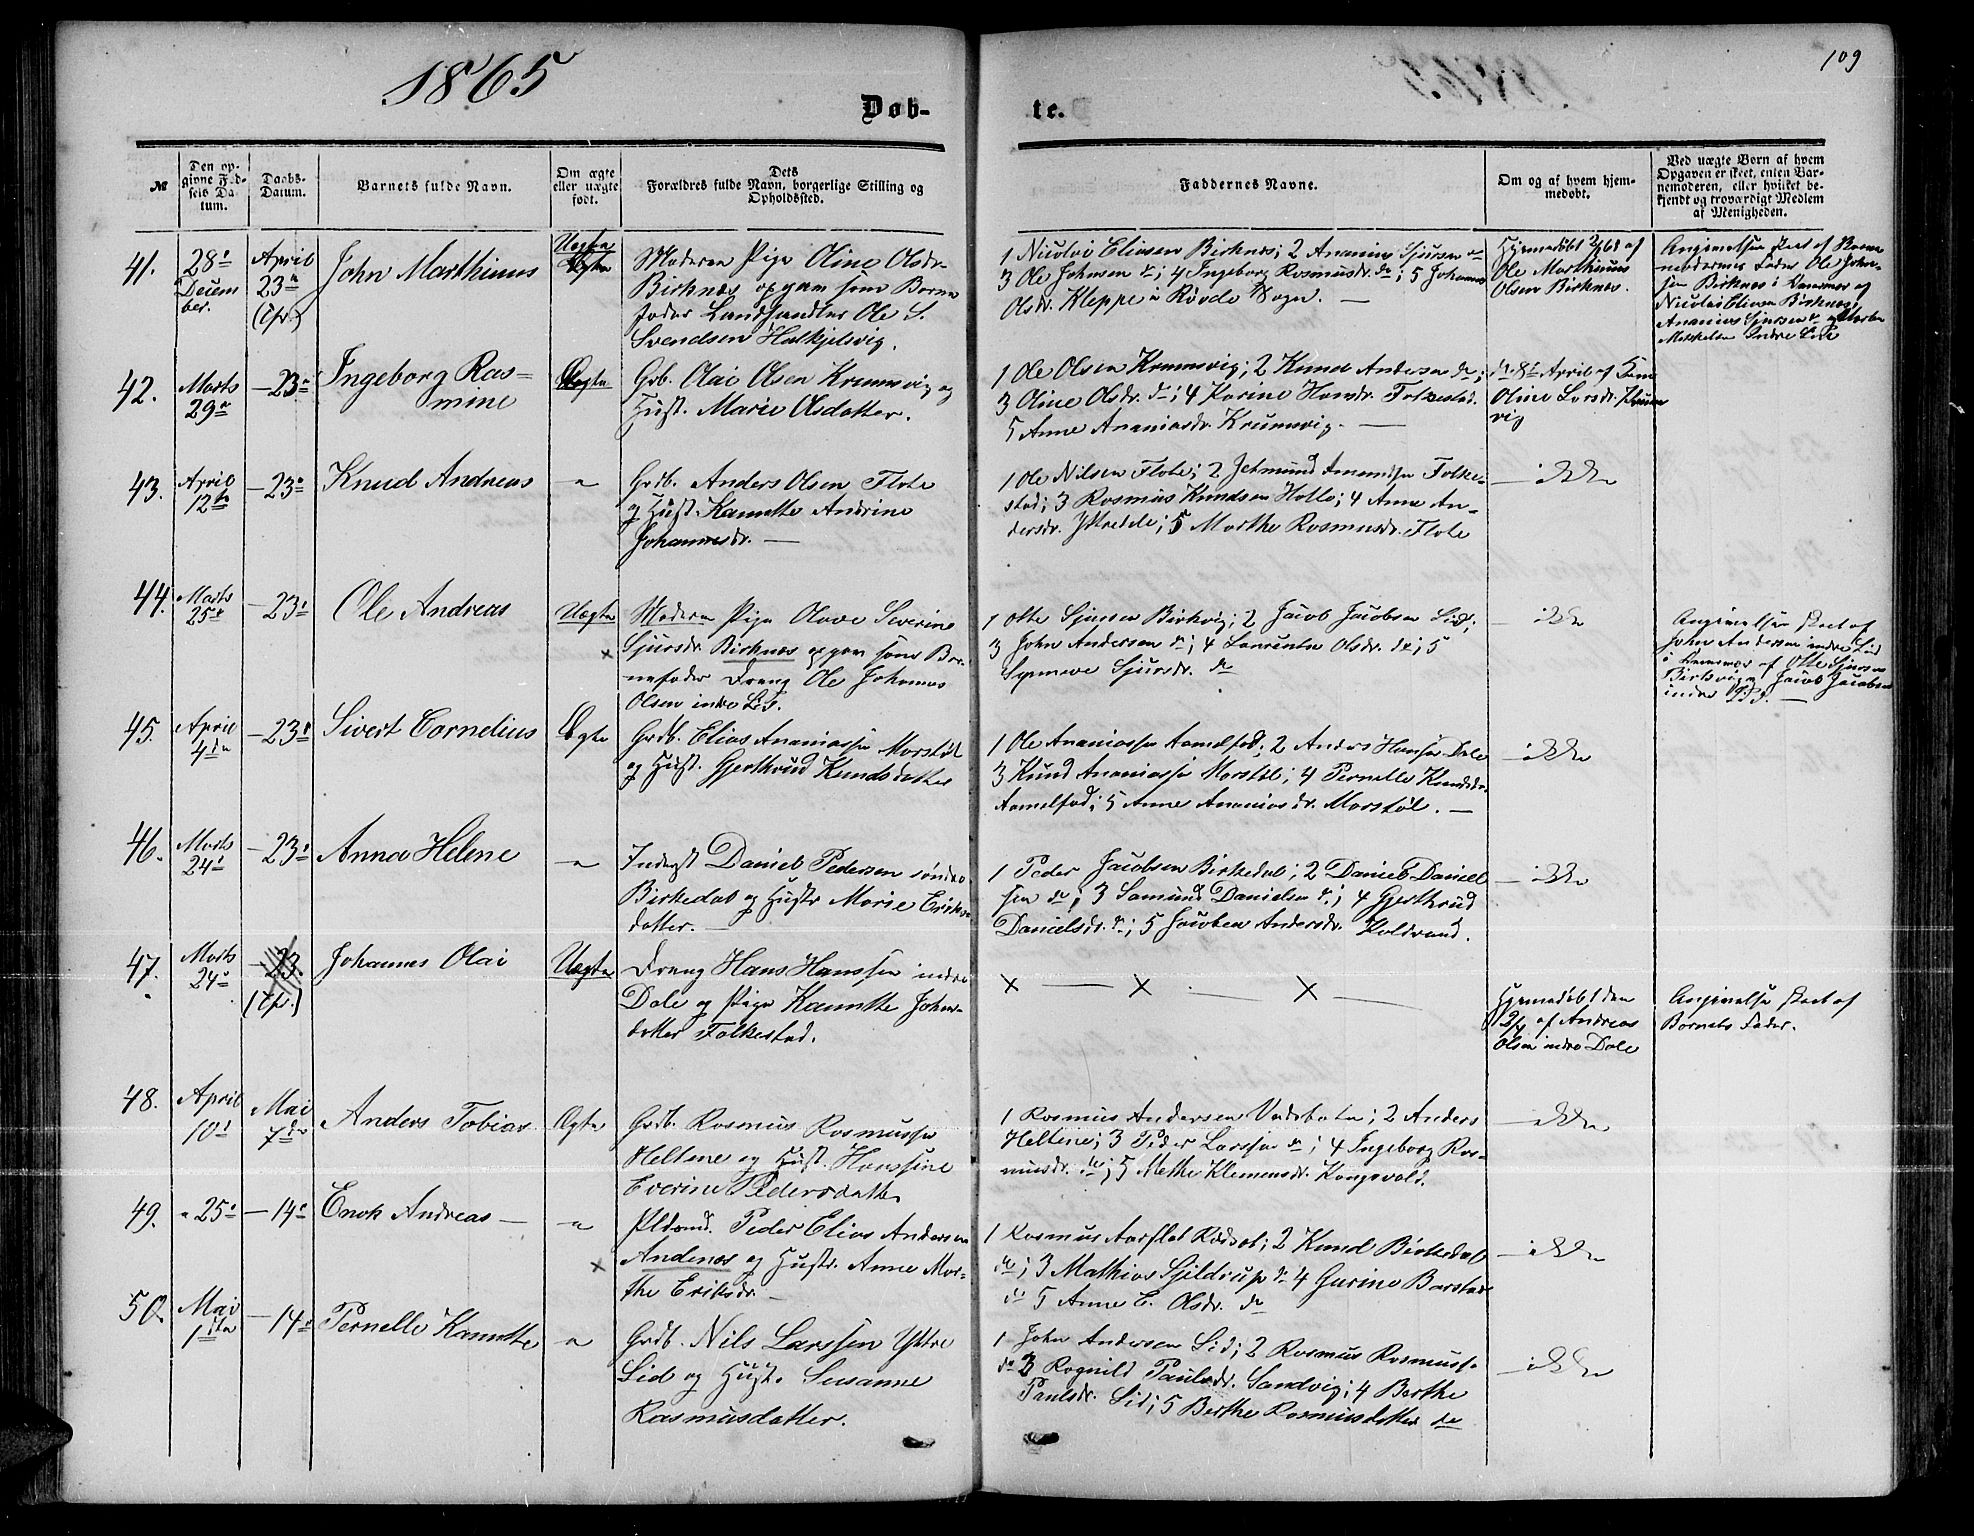 1865
109
Døb-
te.
№
Den op-
givne Fød-
sels Da-
tum.
Daabs-
Datum.
Barnets fulde Navn.
Om ægte
eller uægte
født.
Dets
Forældres fulde Navn, borgerlige Stilling og
Opholdssted.
Faddernes Navne.
Om og af hvem hjem-
medøbt.
Ved uægte Børn af hvem
Opgaven er skeet, enten Bar-
nemoderen, eller hvilket be-
kjendt og troværdigt Medlem
af Menigheden.
41.
28de
Decem
ber.
April
23de
(Cpr.)
John Marthinus
Uægte
Moderen Pige Oline Olsdr.
Birknæs opgav som Barne
fader Landhandler Ole S.
Svendsen Halkjelsvig.
1 Nicolai Eliasen Birknæs; 2 Ananias Sjursen do
3 Ole Johnsen do; 4 Ingeborg Rasmusdr. do; 5 Johanne
Olsdr. Kleppe i Røvde Sogn. —
Hjemmedøbt af
Ole Marthinus
Olsen Birknæs.
Angivelsen skeet af Barne
moderens Fader Ole John-
sen Birknæs i Nærvær af
Nicolai Eliasen Birknæs,
Ananias Sjursen do og
Mikkelsen Indre Lid
42.
Marts
29de
— 23de
Ingeborg Ras-
mine
Ægte
Grb. Olai Olsen Krumsvig og
Hust. Marie Olsdatter.
1 Ole Olsen Krumsvig; 2 Knud Andersen do;
3 Oline Olsdr. do; 4 Karine Hansdr. Folkestad.
5 Anne Ananiasdr. Krumsvig. —
8de April af
Oline Larsdr. Krum
vig
43.
April
12te
— 23de
Knud Andreas
"
Grdb. Anders Olsen Flote
og Hust. Kanutte Andrine
Johannesdr. —
1 Ole Nilsen Flote; 2 Jetmund Amundsen Folke-
stad; 3 Rasmus Knudsen Holte; 4 Anne An-
dersdr. Yttredale; 5 Marthe Rasmusdr. Flote
— ikke
44.
Marts
25de
— 23de
Ole Andreas
Uægte
Moderen Pige Olave Severine
× Sjursdr. Birknæs opgav som Bar-
nefader Dreng Ole Johannes
Olsen indre Lid.
1 Otte Sjursen Birkvig; 2 Jacob Jacobsen Lid;
3 John Andersen do; 4 Laurentse Olsdr. do; 5
Synneve Sjursdr. do
— ikke
Angivelsen skeet af
John Andersen indre Lid
i Nærvær af Otte Sjursen
Birkvig og Jacob Jacobsen
indre Lid. —
45.
April
4de
— 23de
Sivert Cornelius
Ægte
Grdb. Elias Ananiassen Morstøl
og Hust. Gjerthrud Knudsdatter
1 Ole Ananiassen Aamelfod; 2 Anders Hansen Dale
3 Knud Ananiassen Morstøl; 4 Pernelle Knudsdr.
Aamelfod; 5 Anne Ananiasdr. Morstøl. —
— ikke
46.
Marts
24de
— 23de
Anna Helene
"
Inderst Daniel Pedersen søndre
Birkedal og Hustr Marie Eriks-
datter. —
1 Peder Jacobsen Birkedal; 2 Daniel Daniel
sen do; 3 Samund Danielsen do; 4 Gjerthrud
Danielsdr. do; 5 Jacobea Andersdr. Koldvand.
— ikke
47.
Marts
24de
23
(Cpr.)
Johannes Olai
Uægte
Dreng Hans Hanssen indre
Dale og Pige Kanutte Johns-
datter Folkestad.
× — × — × —
Hjemmedøbt den
2/4 af Andreas
Olsen indre Dale
Angivelse skeet af
Barnets Fader.
48.
April
10de
Mai
7de
Anders Tobias
Ægte
Grdb. Rasmus Rasmussen
Heltne og Hust. Hanssine
Everine Pedersdatter
1 Rasmus Andersen Vadstein; 2 Anders
Heltene; 3 Peder Larssen do; 4 Ingeborg Ras-
musdr. do; 5 Methe Klemensdr. Kongsvold.
— ikke
49.
" 25de
— 14de
Enok Andreas —
"
Pldsmd. Peder Elias Andersen
× Andenæs og Hustr. Anne Mar-
the Eriksdr. —
1 Rasmus Aarflot; 2 Knud Birkedal
do; 3 Mathias Gjeldrup do 4 Gurine Barstad
do 5 Anne E. Olsdr. do
— ikke
50.
Mai
1ste
— 14de
Pernelle Kanutte
"
Grdb. Nils Larssen Yttre
Lid og Hust. Susanne
Rasmusdatter.
1 John Andersen Lid; 2 Rasmus Rasmuss.
do 3 Rognild Paulsdr. Sandvig; 4 Berthe
Paulsdr. Lid; 5 Berthe Rasmusdatter do
— ikke